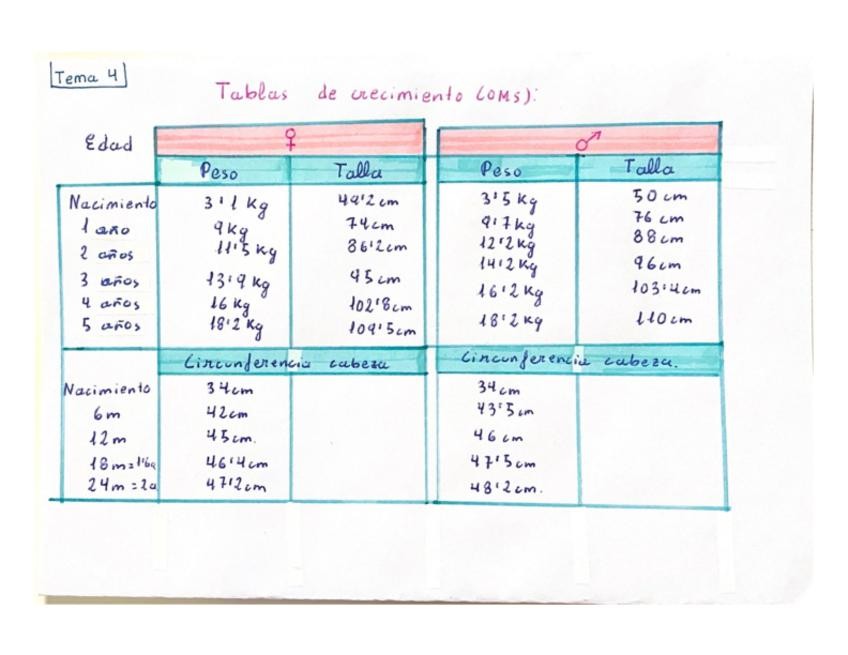 Tema 4
Tablas de crecimiento (OMS):
Edad ♀ ♂
Peso Talla Peso Talla
Nacimiento 3'1 Kg 49'2 cm 3'5 Kg 50 cm
1 año 9 Kg 74 cm 9'7 Kg 76 cm
2 años 11'5 Kg 86'2 cm 12'2 Kg 88 cm
3 años 13'9 Kg 95 cm 14'2 Kg 96 cm
4 años 16 Kg 102'8 cm 16'2 Kg 103'4 cm
5 años 18'2 Kg 109'5 cm 18'2 Kg 110 cm
Circunferencia cabeza Circunferencia cabeza.
Nacimiento 34 cm 34 cm
6 m 42 cm 43'5 cm
12 m 45 cm. 46 cm
18 m = 46'4 cm 47'5 cm
24 m = 2a 47'2 cm 48'2 cm.